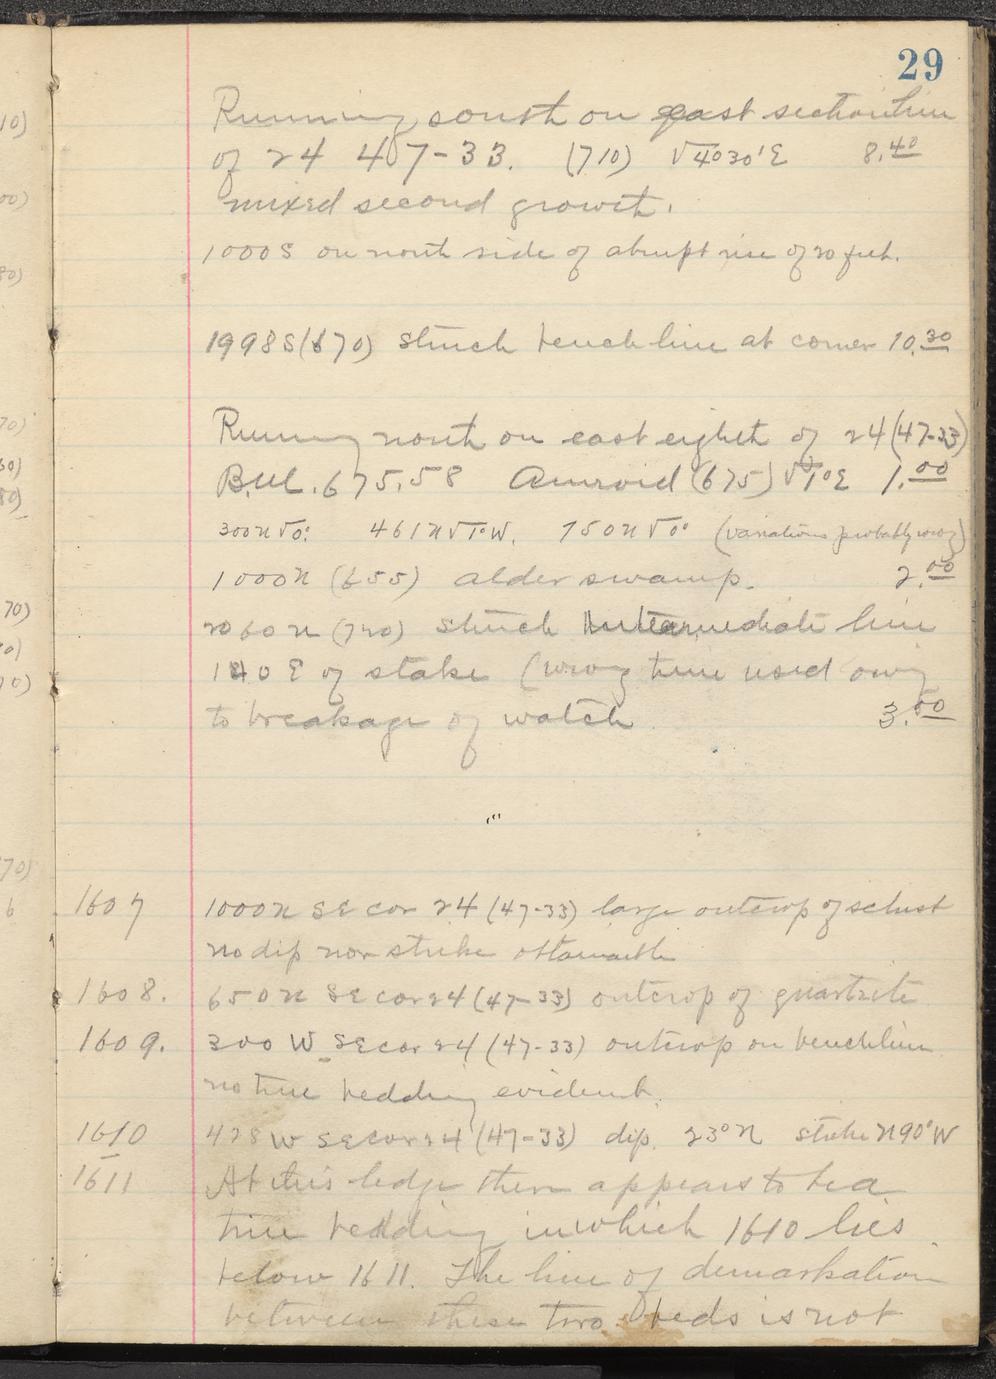 10)
00)
80)
70)
60)
80)
70)
0)
70)
70)
6
29
Running south on east section line
of 24 47-33. (710) V4°30'E 8.40
mixed second growth.
1000S on north side of abrupt rise of 20 feet.
1998S(670) struck bench line at corner 10.30
Running north on east eighth of 24(47-33)
B.M. 675.58 Aneroid (675) V1°E 1.00
300N V0° 461N V1°W. 750N V0° (variations probably wrong)
1000N (655) alder swamp. 2.00
2060N (720) struck intermediate line
140 E of stake (wrong time used owing
to breakage of watch 3.50
1607 1000N SE cor 24 (47-33) large outcrop of schist
no dip nor strike obtainable
1608. 650N SE cor 24 (47-33) outcrop of quartzite
1609. 300 W SE cor 24 (47-33) outcrop on bench line
no true bedding evident.
1610 428 W SE cor 24 (47-33) dip 23°N strike N90°W
1611 At this ledge there appears to be a
true bedding in which 1610 lies
below 1611. The line of demarkation
between these two beds is not